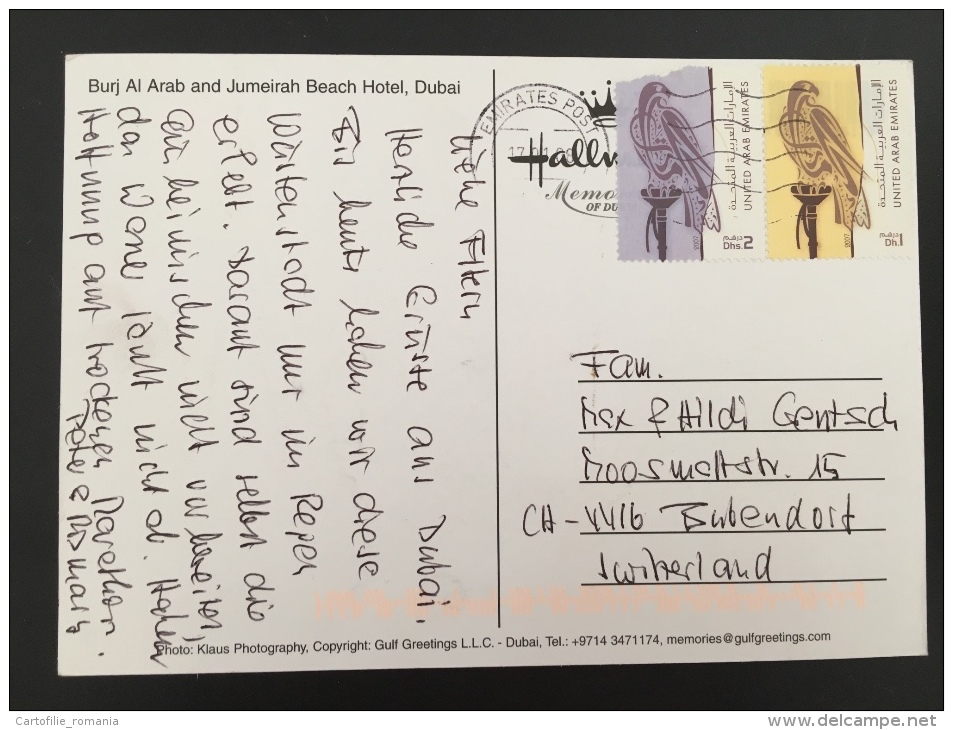 Burj Al Arab and Jumeirah Beach Hotel, Dubai
Liebe Eltern
Herzliche Grüsse aus Dubai.
Bis heute haben wir diese
Wüstenstadt nur im Regen
erlebt. Darauf sind selbst die
Einheimischen nicht vorbereitet,
das Wasser läuft nicht ab. Haben
Hoffnung auf trockenen Marathon.
Peter &
EMIRATES POST
Hallm
Memo
OF DU
الإمارات العربية المتحدة
UNITED ARAB EMIRATES
2007
درهم
Dhs. 2
الإمارات العربية المتحدة
UNITED ARAB EMIRATES
2007
درهم
Dh. 1
Fam.
Max & Hildi Gentsch
Moosmattstr. 15
CH-4416 Bubendorf
Switzerland
Photo: Klaus Photography, Copyright: Gulf Greetings L.L.C. - Dubai, Tel.: +9714 3471174, memories@gulfgreetings.com
Cartofilie_romania
www.delcampe.net